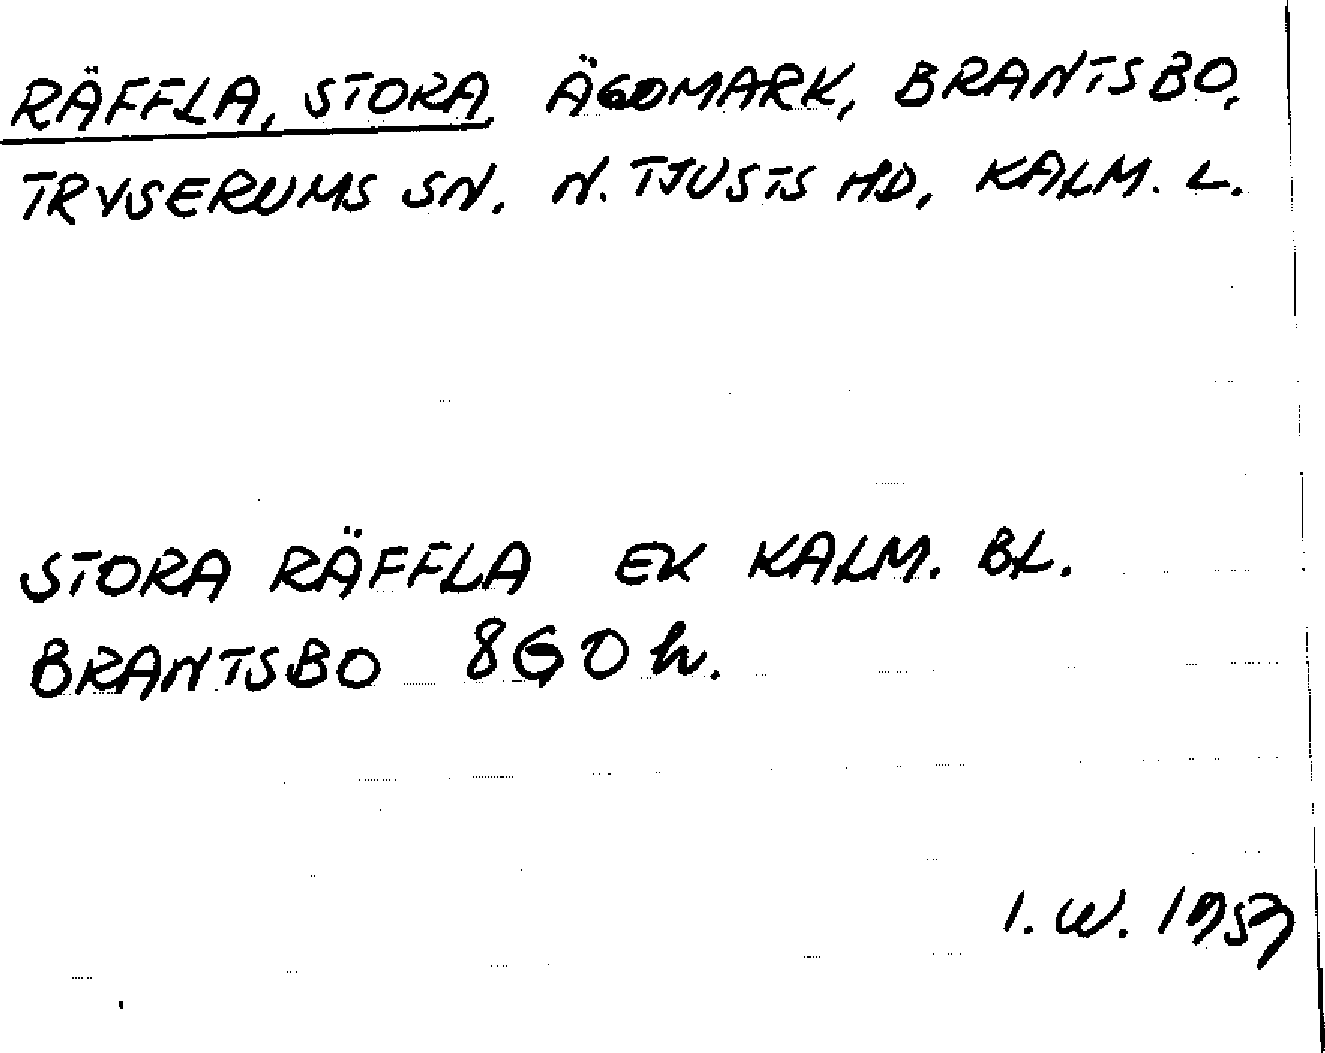 RÄFFLA, STORA, ÄGOMARK, BRANTSBO,
TRYSERUMS SN. N. TJUSTS HD, KALM. L.
STORA RÄFFLA EK KALM. BL.
BRANTSBO 860 h.
I. W.